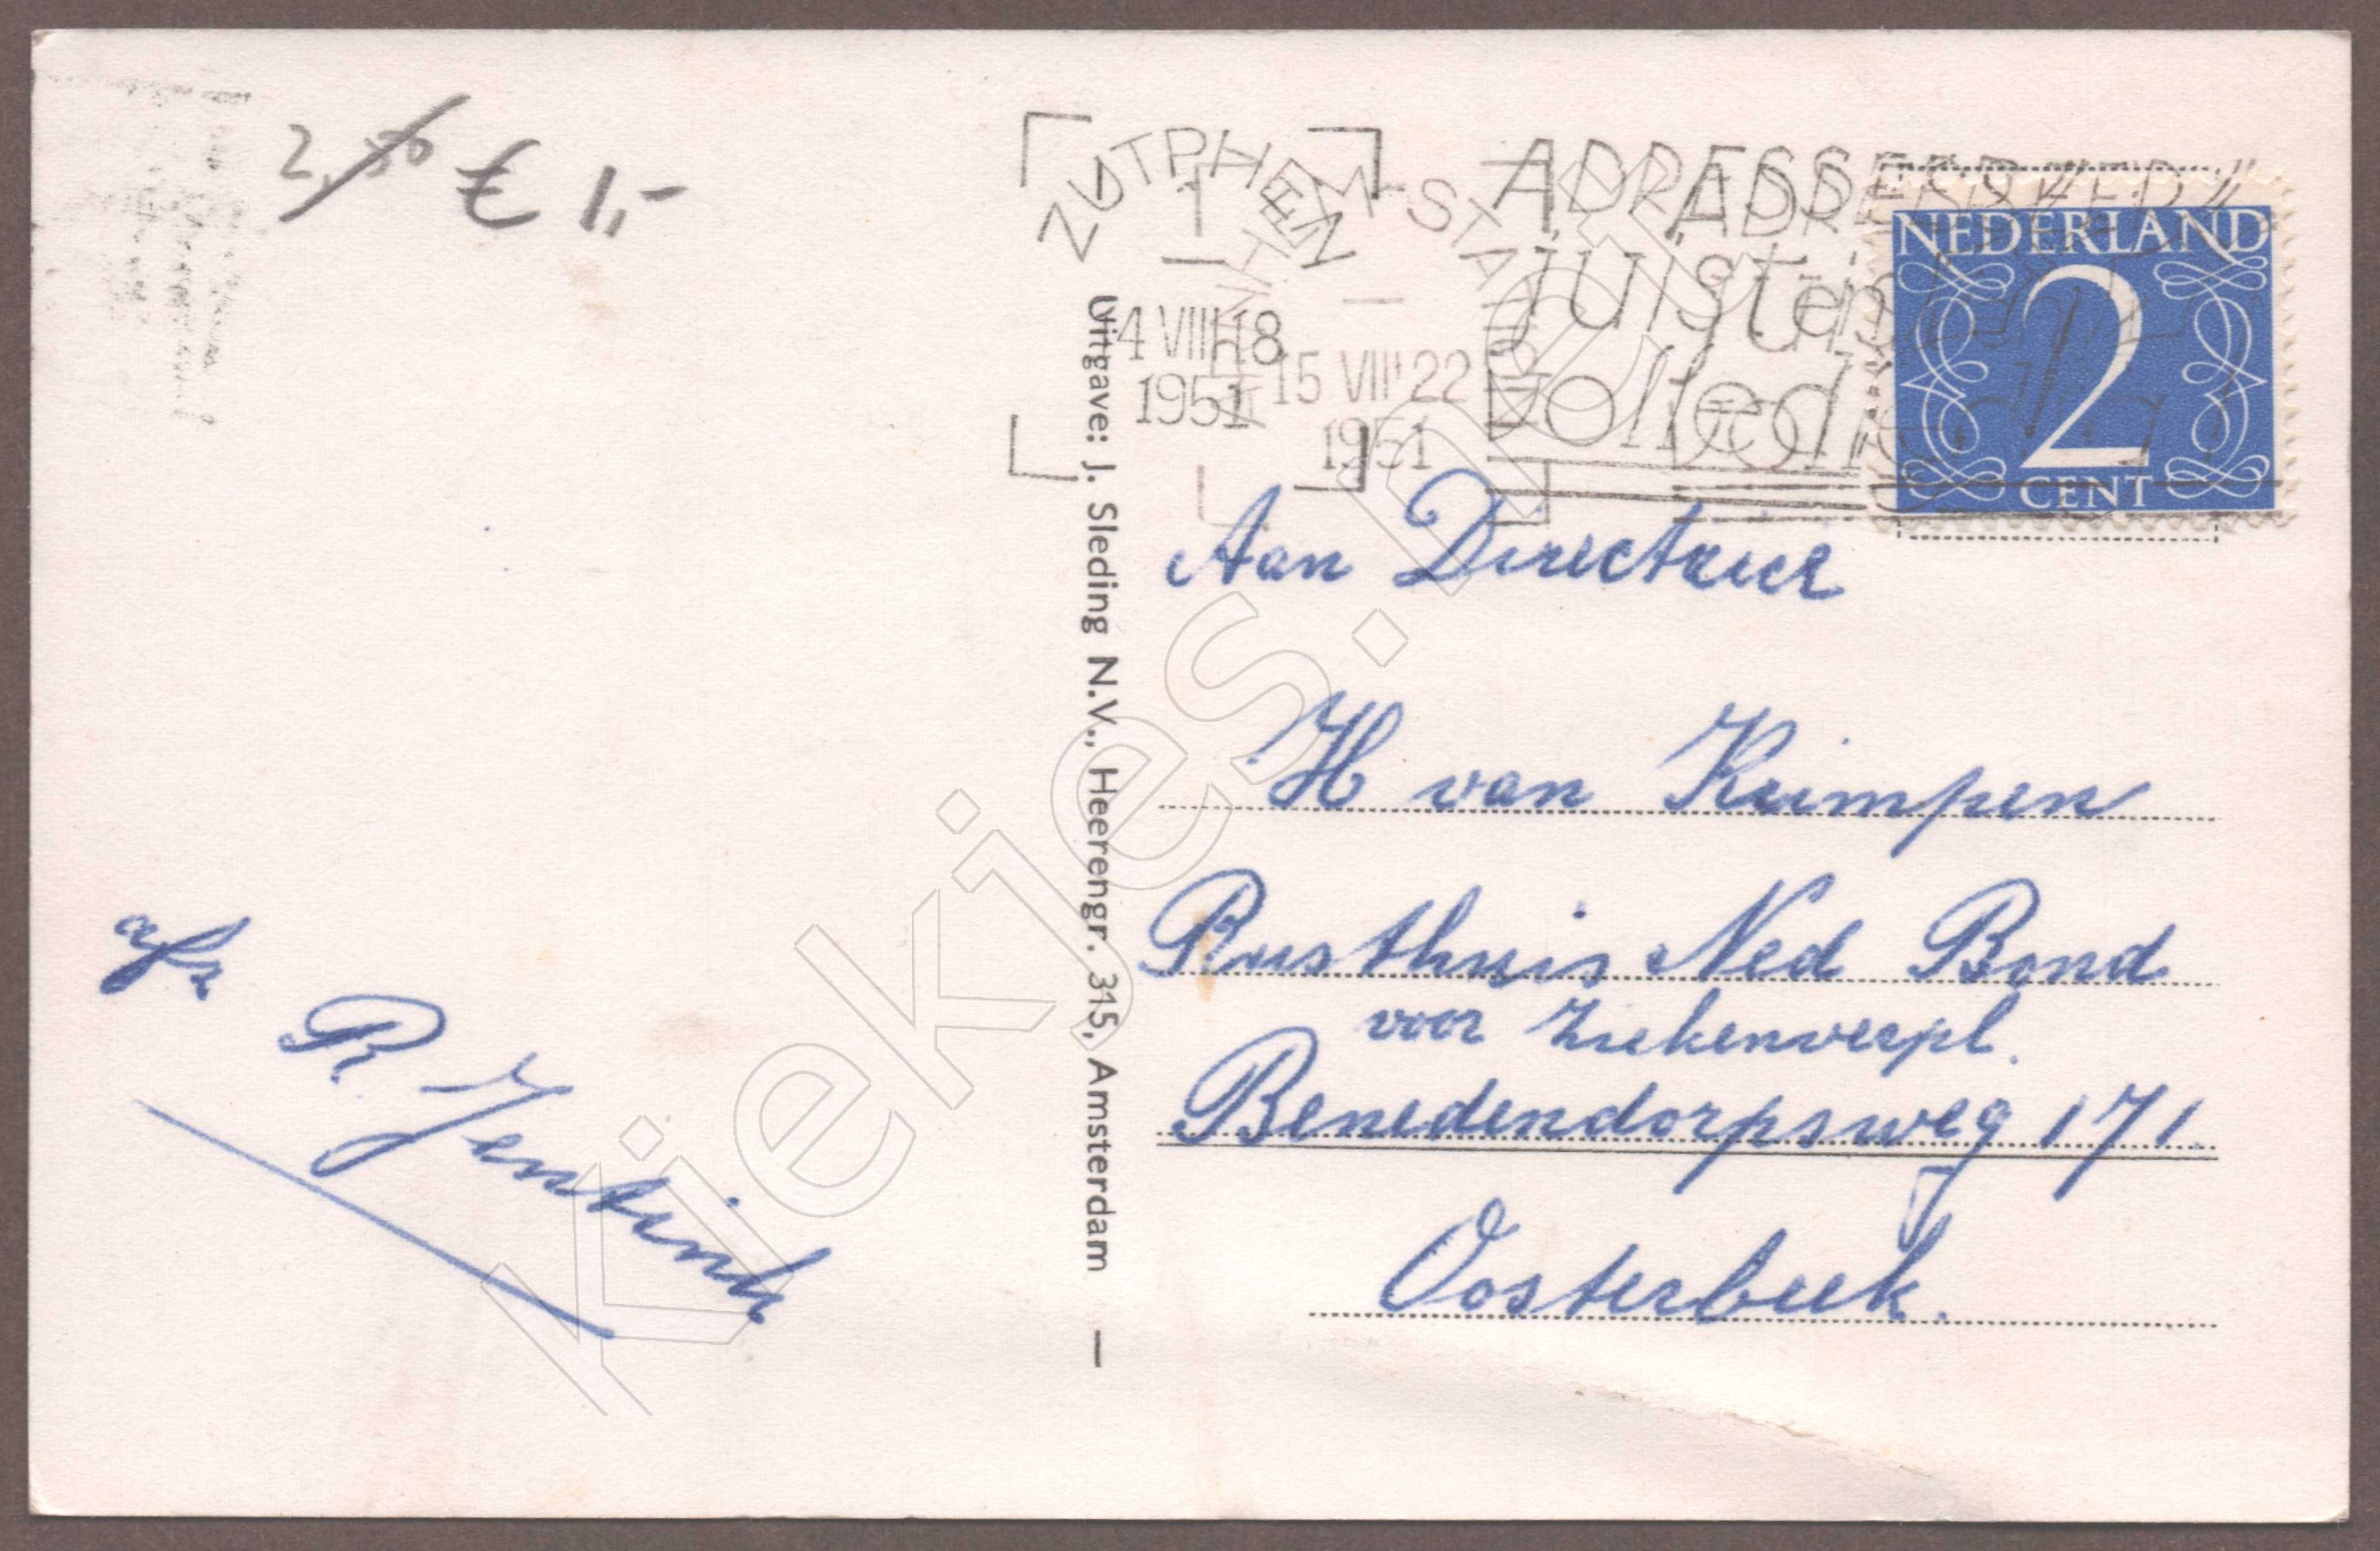 2,50 € 1,-
ZUTPHEN
ARNHEM-STATION
14 VIII 18
1951
15 VIII 22
1951
ADRESSEER
juist en
volledig
NEDERLAND
2
CENT
Uitgave: J. Sleding N.V., Heerengr. 315, Amsterdam —
Aan Directrice
H van Krimpen
Rusthuis Ned Bond
voor Ziekenverpl.
Benedendorpsweg 171
Oosterbeek.
afz
R Jentink
kiekjes.net